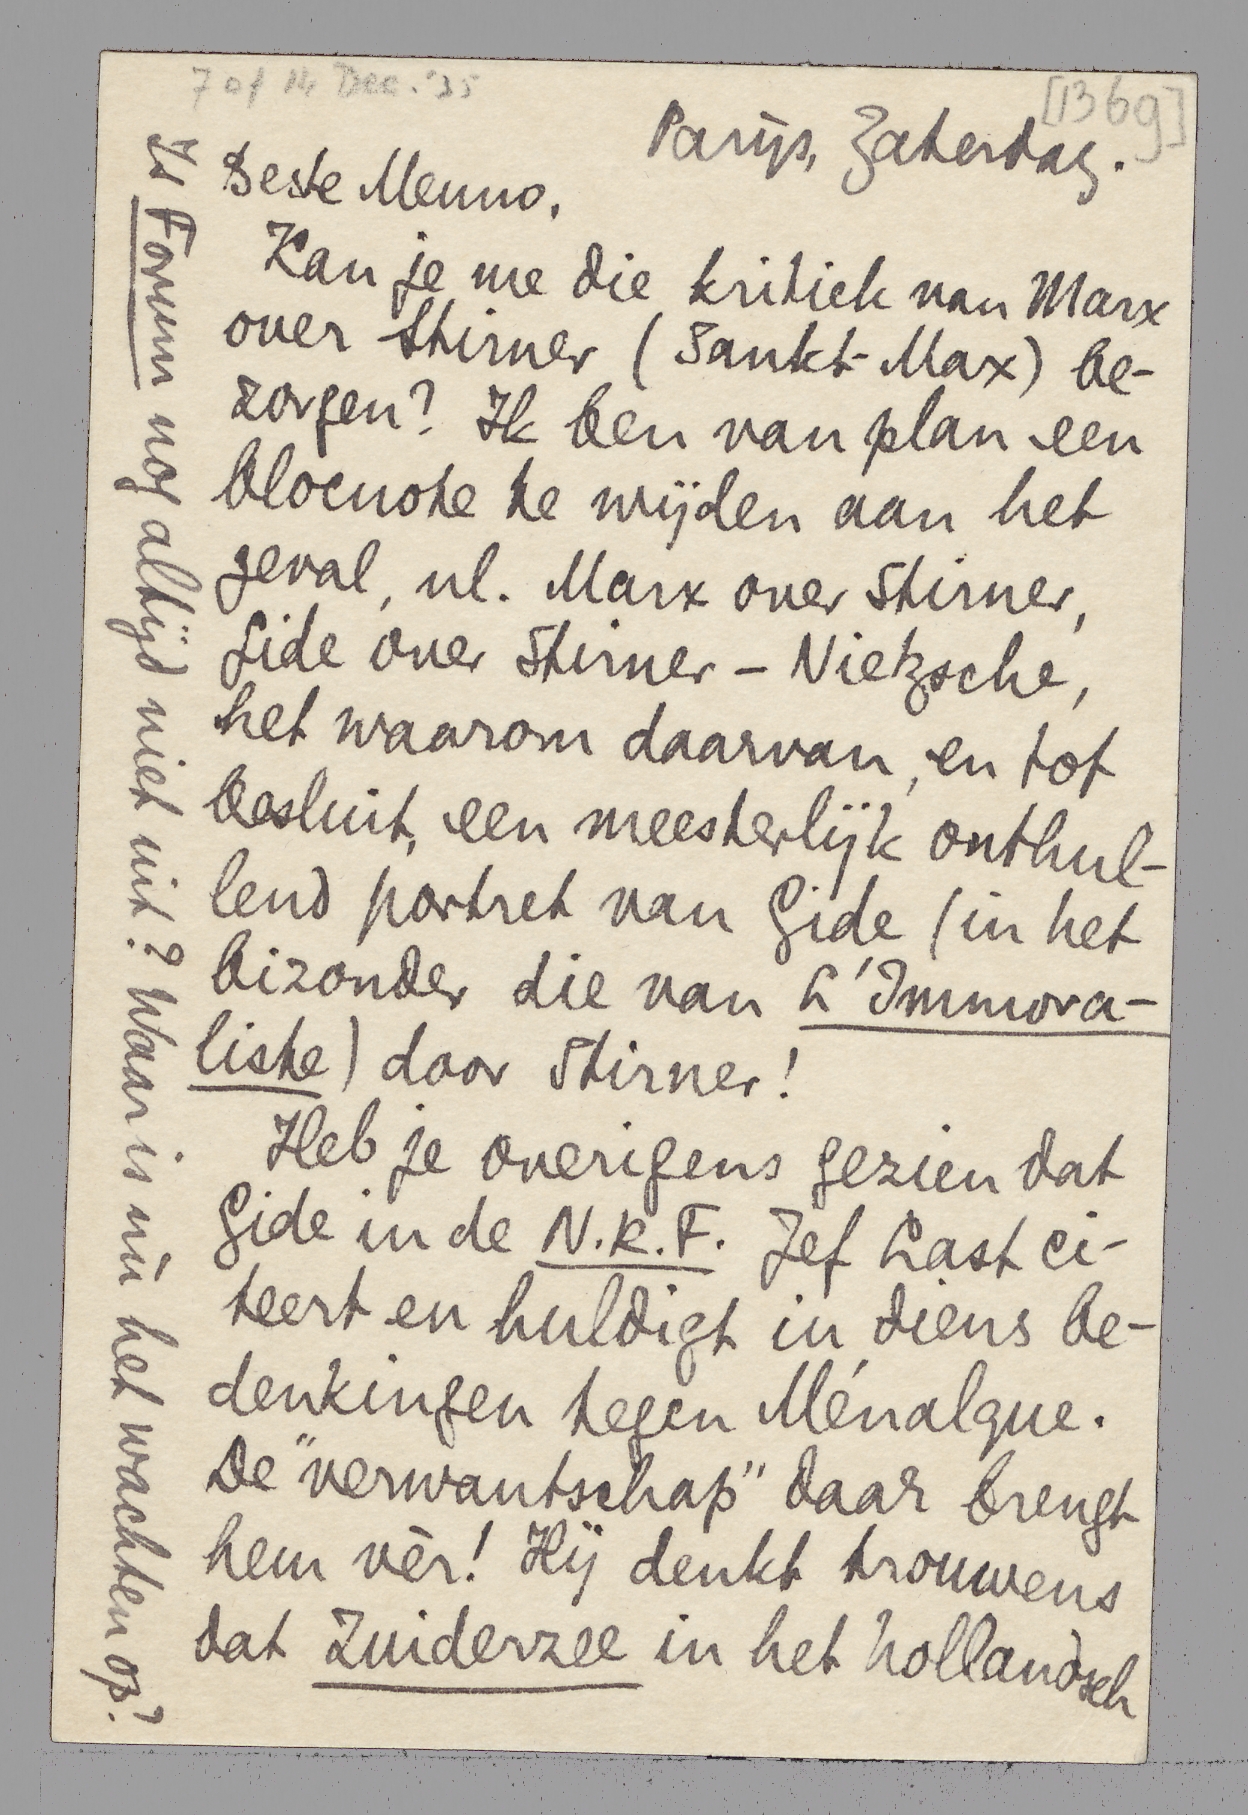 7 of 14 Dec. '35
[1369]
Parijs, Zaterdag.
Beste Menno,
Kan je me die kritiek van Marx
over Stirner (Sankt-Max) be-
zorgen? Ik ben van plan een
blocnote te wijden aan het
geval, nl. Marx over Stirner,
Gide over Stirner - Nietzsche,
het waarom daarvan, en tot
besluit, een meesterlijk onthul-
lend portret van Gide (in het
bizonder die van L'Immora-
liste) door Stirner!
Heb je overigens gezien dat
Gide in de N.R.F. Jef Last ci-
teert en huldigt in diens be-
denkingen tegen Ménalque.
De "verwantschap" daar brengt
hem vèr! Hij denkt trouwens
dat Zuiderzee in het hollandsch
Is Forum nog altijd niet uit? Waar is nù het wachten op?